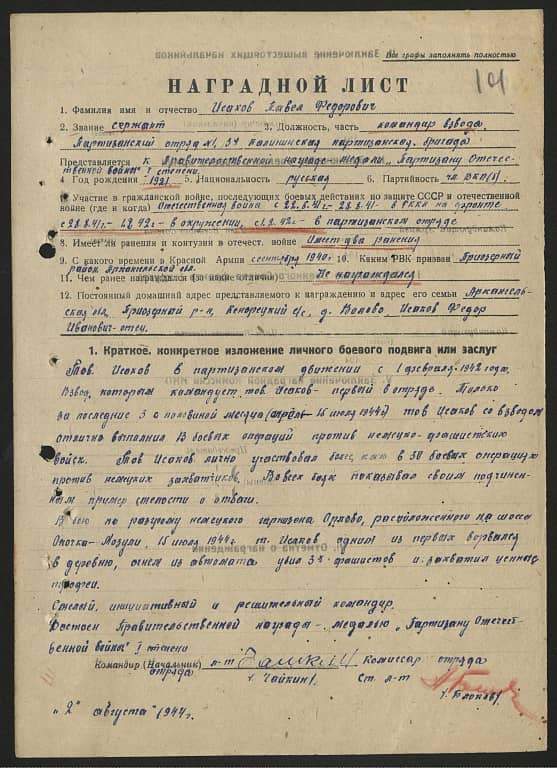 Все графы заполнять полностью
191
НАГРАДНОЙ ЛИСТ
1. Фамилия имя и отчество Исаков Павел Федорович
2. Звание сержант 3. Должность, часть командир взвода,
Партизанский отряд №1, 3й Калининская партизанская бригада
Представляется к Правительственной награде медали „Партизану Отечест-
твенной войны" I степени,
4. Год рождения 1921 5. Национальность русская 6. Партийность чл. ВКП(б)
7. Участие в гражданской войне, последующих боевых действиях по защите СССР и отечественной
войне (где и когда) Отечественная война с 22.6.41г. - 28.8.41г - в РККА на фронте
с 28.8.41г. - 1.2.42г - в окружении, с 1.2.42г - в партизанском отряде
8. Имеет ли ранения и контузии в отечест. войне Имеет два ранения
9. С какого времени в Красной Армии сентябрь 1940г 10. Каким РВК призван Приозерный
район Архангельской обл.
11. Чем ранее награжден (за какие отличия) Не награждался
12. Постоянный домашний адрес представляемого к награждению и адрес его семьи Архангель-
ская обл, Приозерный р-н, с/с, д. Волово, Исаков Федор
Иванович - отец.
1. Краткое, конкретное изложение личного боевого подвига или заслуг
Тов. Исаков в партизанском движении с 1 февраля 1942 года.
Взвод, которым командует тов. Исаков - первый в отряде. Только
за последние 3 с половиной месяца (апрель - 15 июля 1944г) тов Исаков со взводом
отлично выполнил 13 боевых операций против немецко-фашистских
войск. Тов Исаков лично участвовал более, как в 30 боевых операциях
против немецких захватчиков. Во всех боях показывал своим подчинен-
ным пример смелости и отваги.
В бою по разгрому немецкого гарнизона Орлово, расположенного на шоссе
Опочка - Мозули, 15 июля 1944г. т. Исаков одним из первых ворвался
в деревню, огнем из автомата убил 3х фашистов и захватил ценные
трофеи.
Смелый, инициативный и решительный командир.
Достоен Правительственной награды - медалью „Партизану Отечест-
венной войны" I степени
Командир (Начальник) л-т Комиссар отряда
отряда / Чайкин / Ст. л-т
/ Блохов /
"2" августа 1944г.